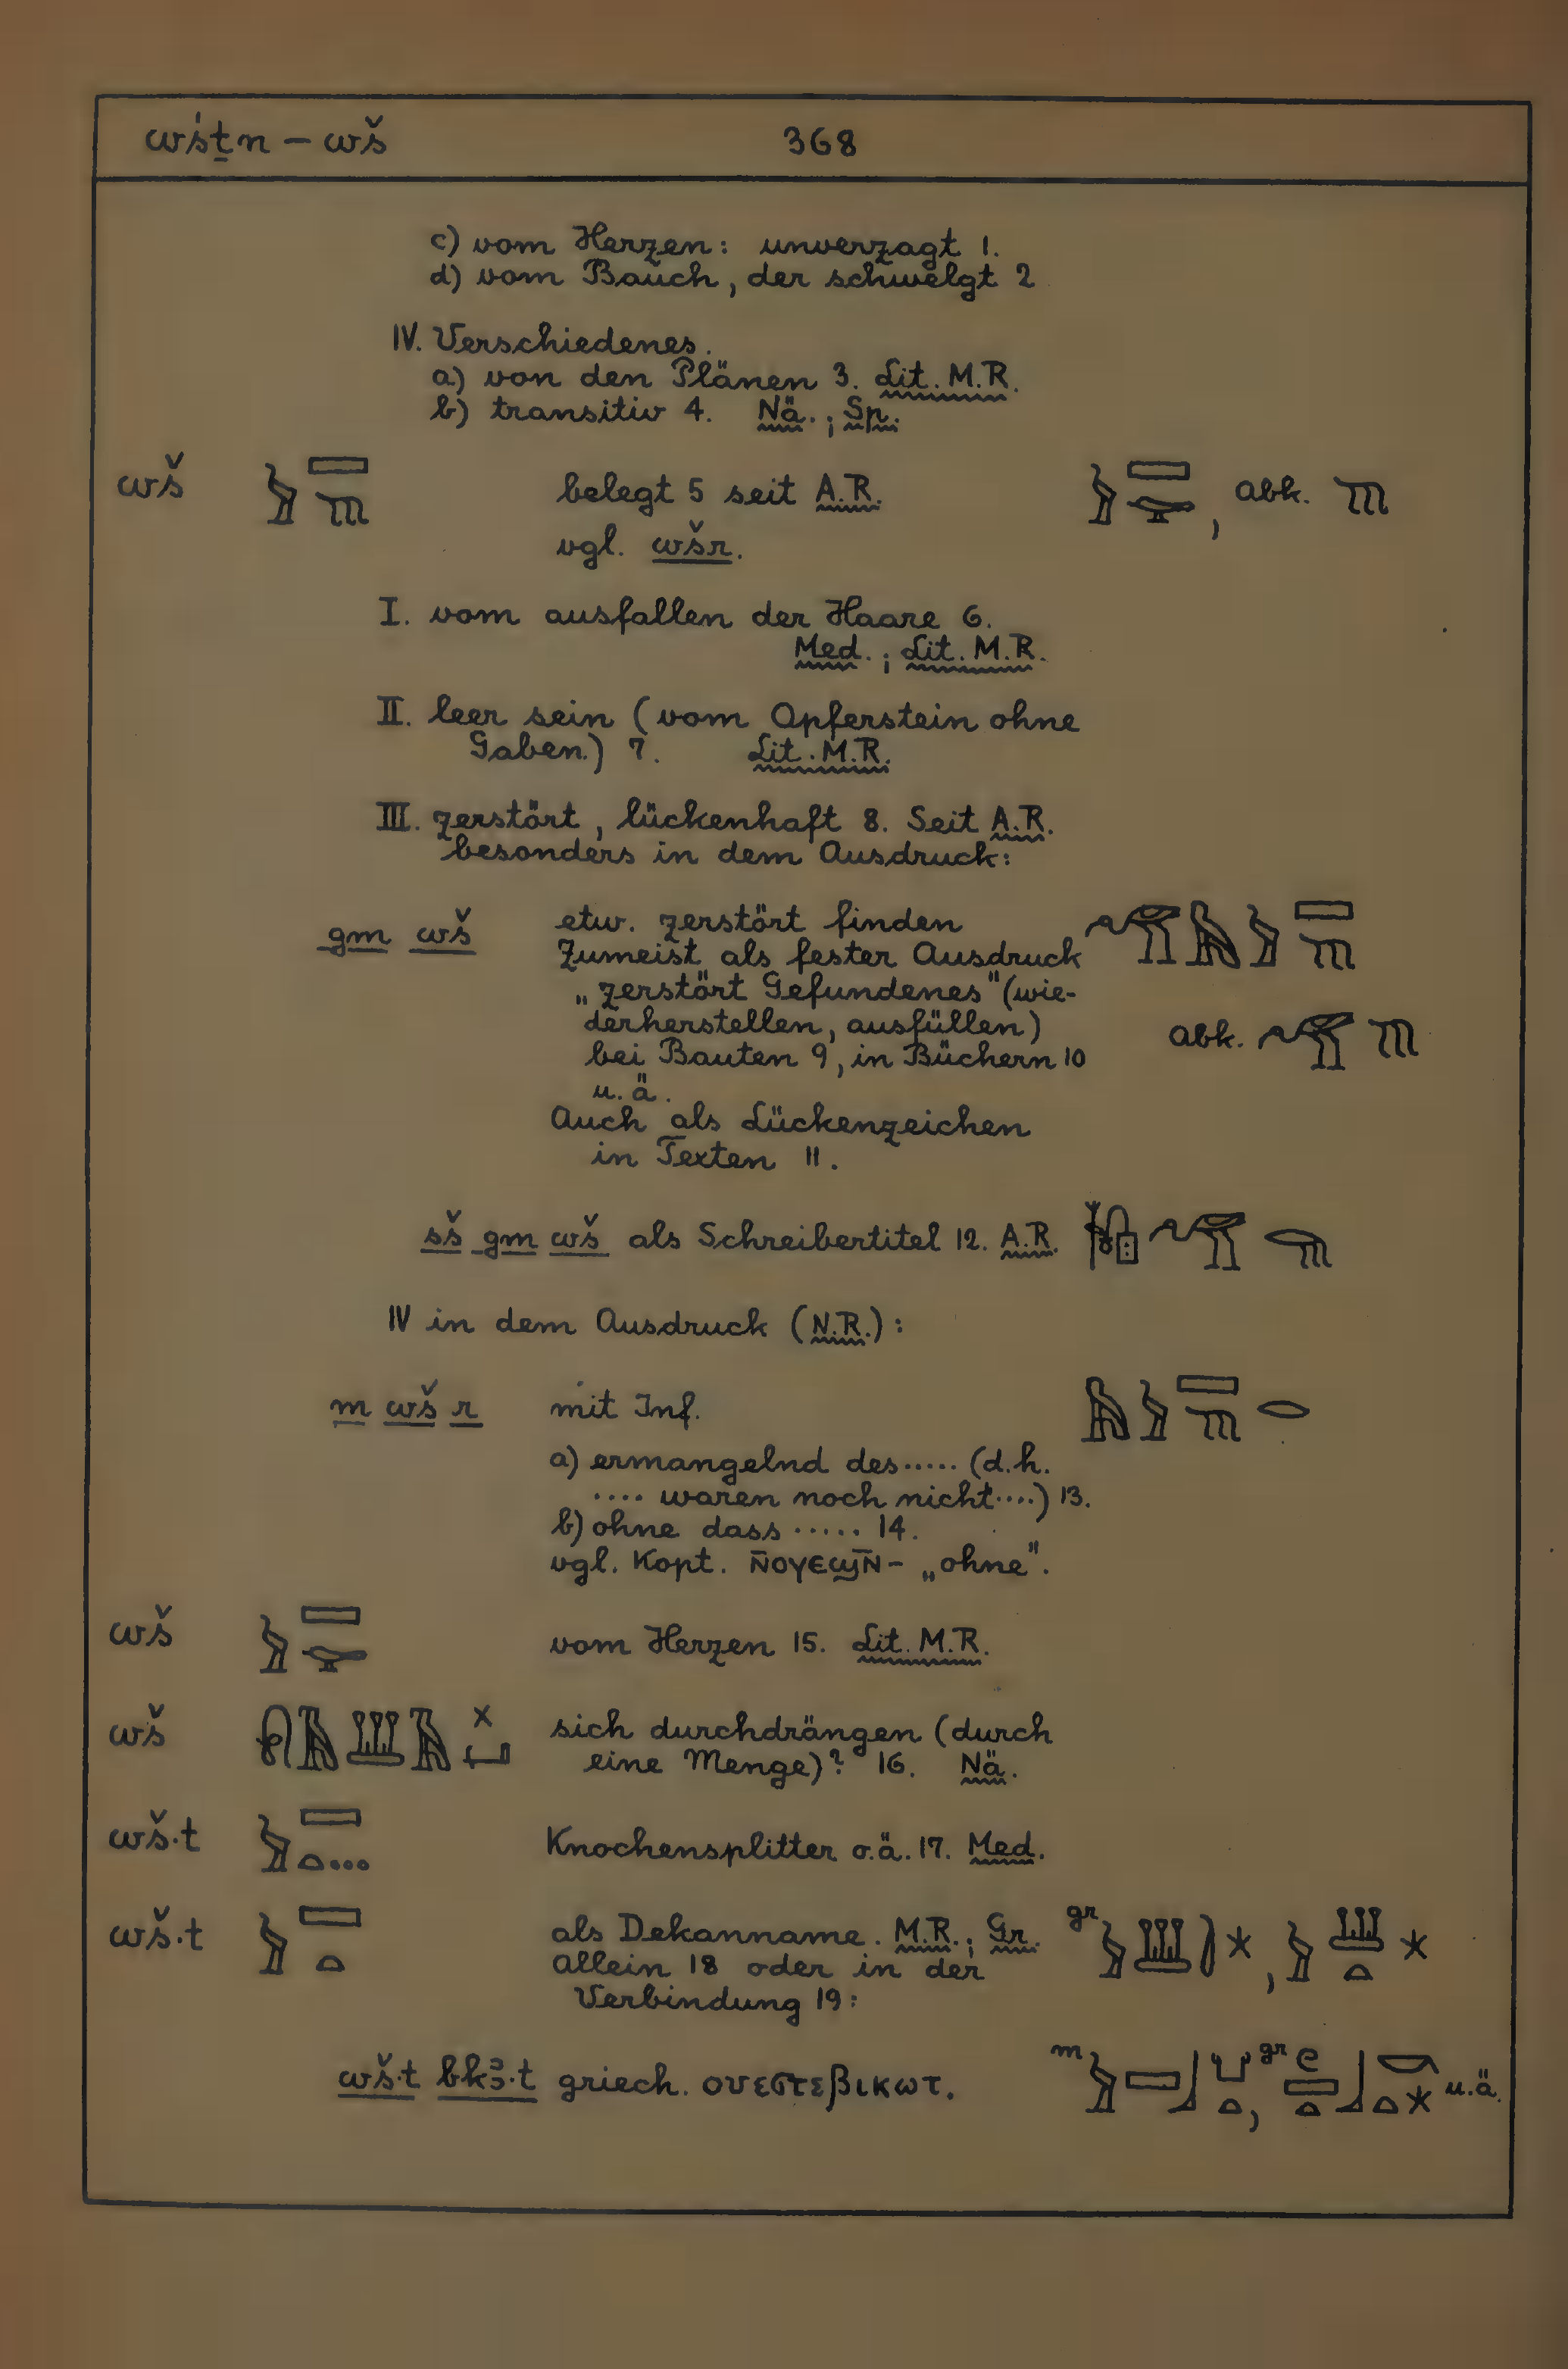 wśṯn – wš 368
c) vom Herzen: unverzagt 1.
d) vom Bauch, der schwelgt 2
IV. Verschiedenes.
a) von den Plänen 3. Lit. M.R.
b) transitiv 4. Nä.; Sp.
wš belegt 5 seit A.R. , abk.
vgl. wšr.
I. vom ausfallen der Haare 6.
Med.; Lit. M.R.
II. leer sein (vom Opferstein ohne
Gaben.) 7. Lit. M.R.
III. zerstört, lückenhaft 8. Seit A.R.
besonders in dem Ausdruck:
gm wš etw. zerstört finden
Zumeist als fester Ausdruck
„zerstört Gefundenes" (wie-
derherstellen, ausfüllen) abk.
bei Bauten 9, in Büchern 10
u. ä.
Auch als Lückenzeichen
in Texten 11.
sš gm wš als Schreibertitel 12. A.R.
IV in dem Ausdruck (N.R.):
m wš r mit Inf.
a) ermangelnd des..... (d.h.
.... waren noch nicht....) 13.
b) ohne dass ..... 14.
vgl. Kopt. N̄ΟΥΕϢN̄- „ohne".
wš vom Herzen 15. Lit. M.R.
wš sich durchdrängen (durch
eine Menge)? 16. Nä.
wš·t Knochensplitter o.ä. 17. Med.
wš·t als Dekanname. M.R.; Gr. gr ,
allein 18 oder in der
Verbindung 19:
wš·t bkꜣ·t griech. ουεστεβικωτ. m , gr u.ä.